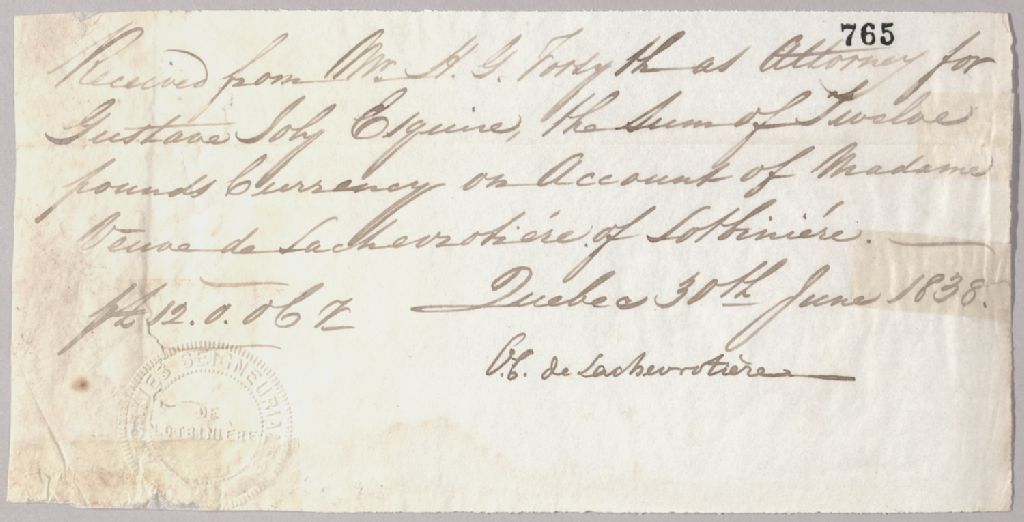 765
Received from Mr. H. G. Forsyth as Attorney for
Gustave Joly Esquire, the sum of Twelve
pounds Currency on Account of Madame
Veuve de Lachevrotiére of Lotbiniére.
Quebec 30th June 1838.
12.0.0 C
de Lachevrotière
SEIGNEURIALES
DE
LOTBINIÈRE